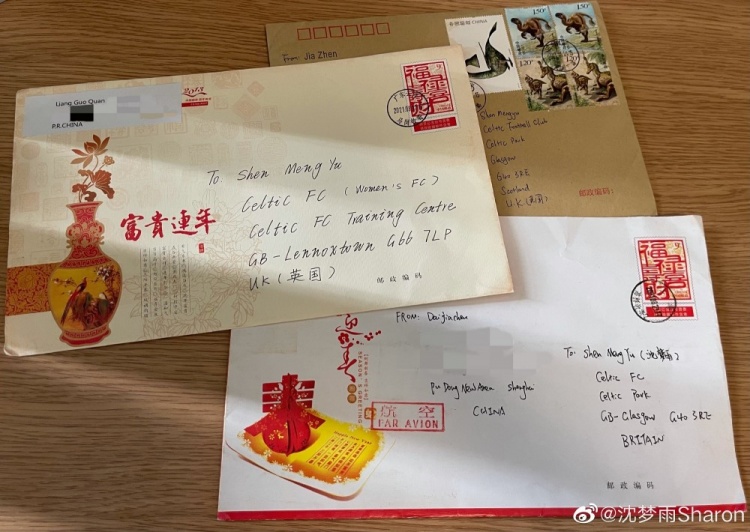 From: Jia Zhen
中国邮政 CHINA
1.50元
1.50元
1.20元
1.20元
Shen Mengyu
Celtic Football Club
Celtic Park
Glasgow
G40 3RE
Scotland
UK (英国)
邮政编码:
Liang Guo Quan
P.R.CHINA
2013
富貴連年
To: Shen Meng Yu
Celtic FC (Women's FC)
Celtic FC Training Centre
GB-Lennoxtown G66 7LP
UK (英国)
邮政编码
FROM: Daijiachen
Pu Dong New Area Shanghai
CHINA
航空
PAR AVION
SEASON'S GREETING
To: Shen Meng Yu (沈梦雨)
Celtic FC
Celtic Park
GB-Glasgow G40 3RE
BRITAIN
邮政编码
@沈梦雨Sharon